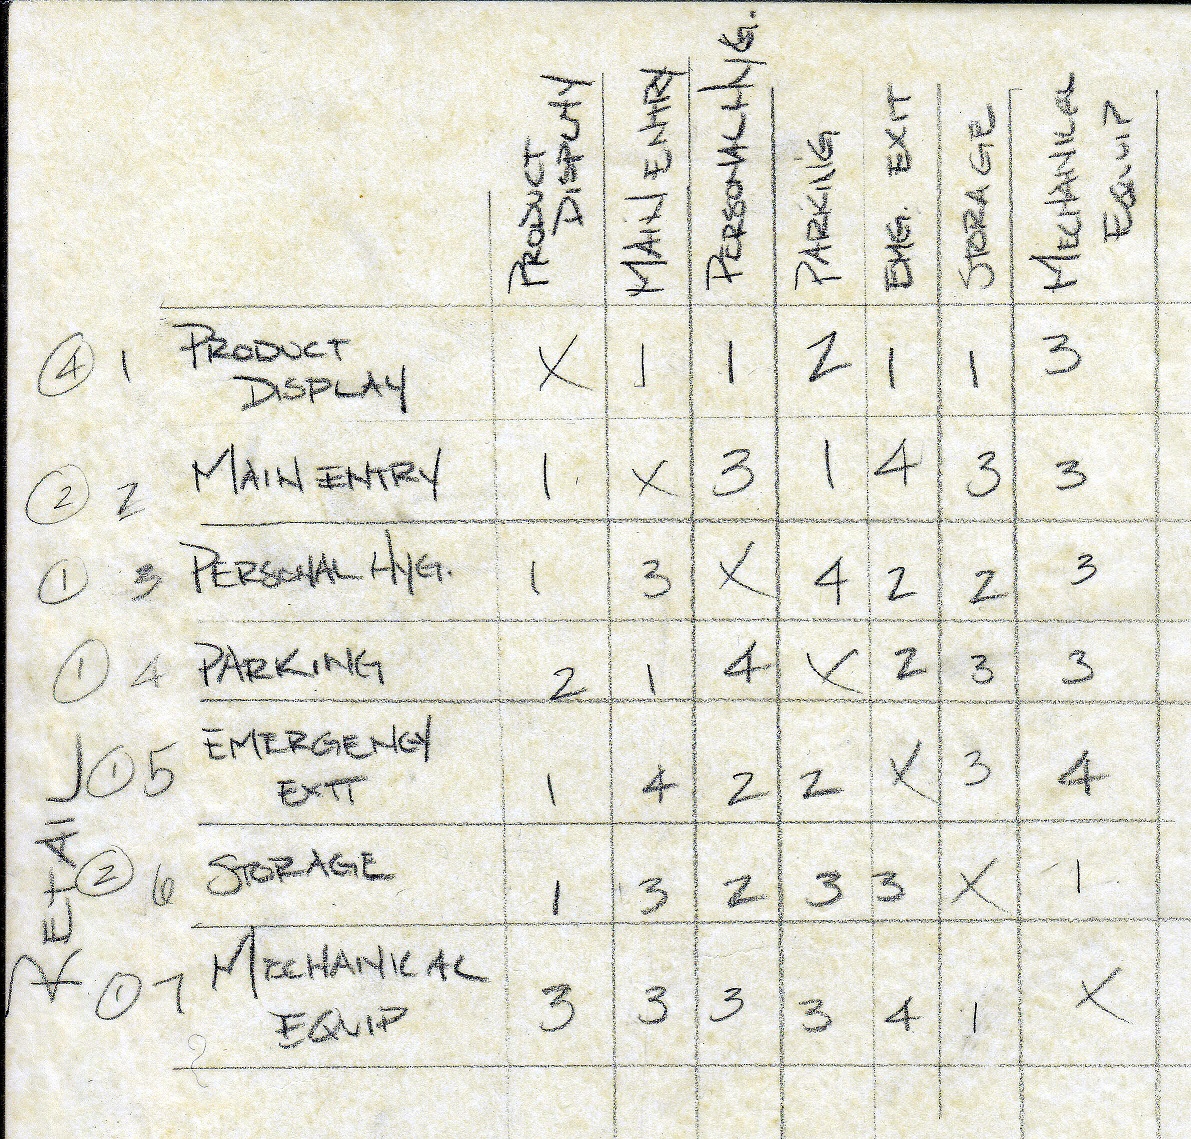 PRODUCT DISPLAY MAIN ENTRY PERSONAL HYG. PARKING EMG. EXIT STORAGE MECHANICAL EQUIP
4 1 PRODUCT DISPLAY X 1 1 2 1 1 3
2 2 MAIN ENTRY 1 X 3 1 4 3 3
1 3 PERSONAL HYG. 1 3 X 4 2 2 3
1 4 PARKING 2 1 4 X 2 3 3
1 5 EMERGENCY EXIT 1 4 2 2 X 3 4
2 6 STORAGE 1 3 2 3 3 X 1
1 7 MECHANICAL EQUIP 3 3 3 3 4 1 X
2
RETAIL